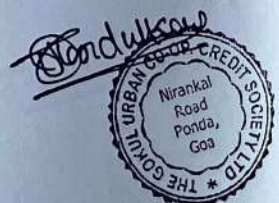 THE GOKUL URBAN CO-OP. CREDIT SOCIETY LTD *
Nirankal
Road
Ponda,
Goa